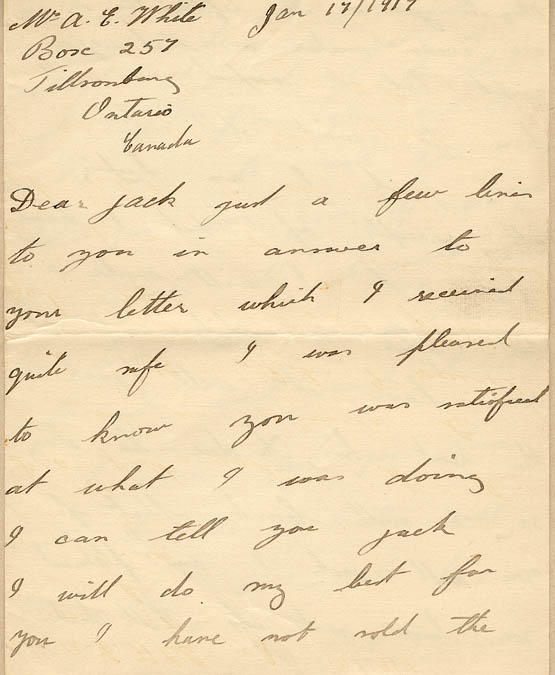 Mr A. E. White Jan 17/1917
Box 257
Tillsonburg
Ontario
Canada
Dear Jack just a few lines
to you in answer to
your letter which I received
quite safe I was pleased
to know you was satisfied
at what I was doing
I can tell you Jack
I will do my best for
you I have not sold the